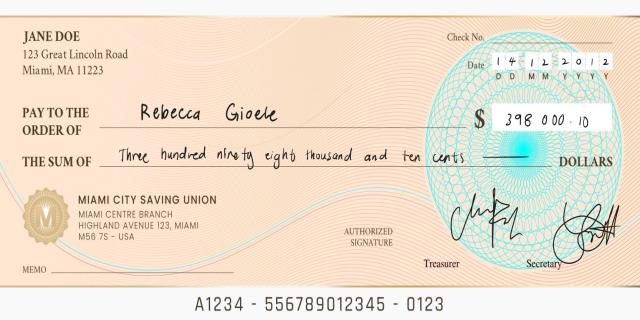 JANE DOE
123 Great Lincoln Road
Miami, MA 11223
Check No.
Date 14 12 2012
D D M M Y Y Y Y
PAY TO THE
ORDER OF Rebecca Gioele
$ 398 000.10
THE SUM OF Three hundred ninety eight thousand and ten cents DOLLARS
M
MIAMI CITY SAVING UNION
MIAMI CENTRE BRANCH
HIGHLAND AVENUE 123, MIAMI
M56 7S - USA
AUTHORIZED
SIGNATURE
MEMO
Treasurer
Secretary
A1234 - 556789012345 - 0123